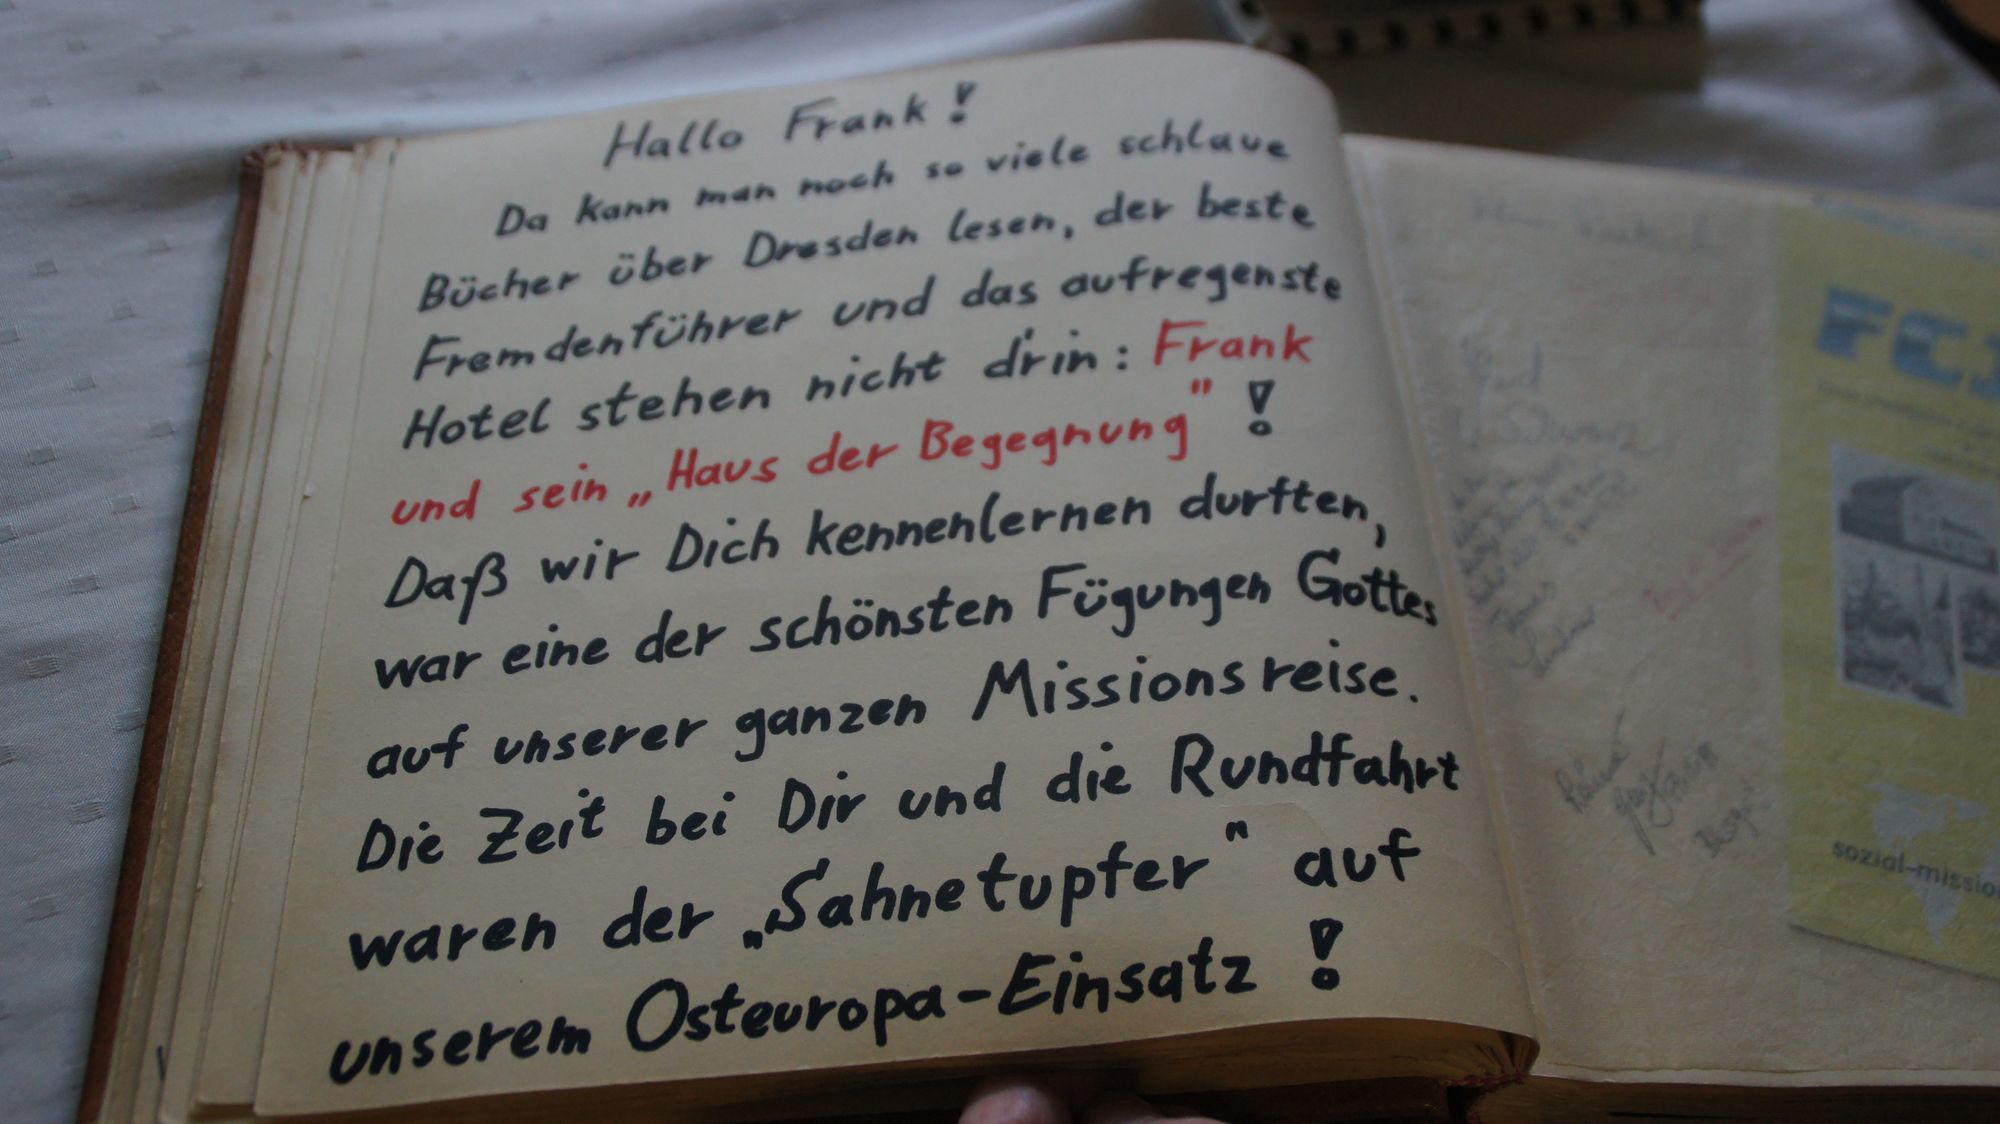 Hallo Frank!
Da kann man noch so viele schlaue
Bücher über Dresden lesen, der beste
Fremdenführer und das aufregenste
Hotel stehen nicht d'rin: Frank
und sein „Haus der Begegnung" !
Daß wir Dich kennenlernen durften,
war eine der schönsten Fügungen Gottes
auf unserer ganzen Missionsreise.
Die Zeit bei Dir und die Rundfahrt
waren der „Sahnetupfer" auf
unserem Osteuropa-Einsatz !
sozial-mission